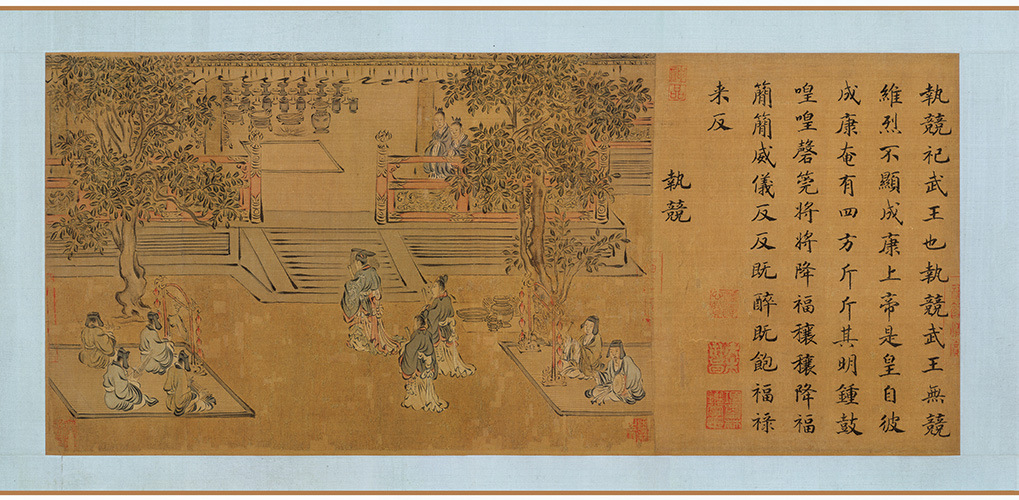 執競祀武王也執競武王無競
維烈不顯成康上帝是皇自彼
成康奄有四方斤斤其明鍾鼓
喤喤磬筦將將降福穰穰降福
簡簡威儀反反既醉既飽福禄
来反
執競